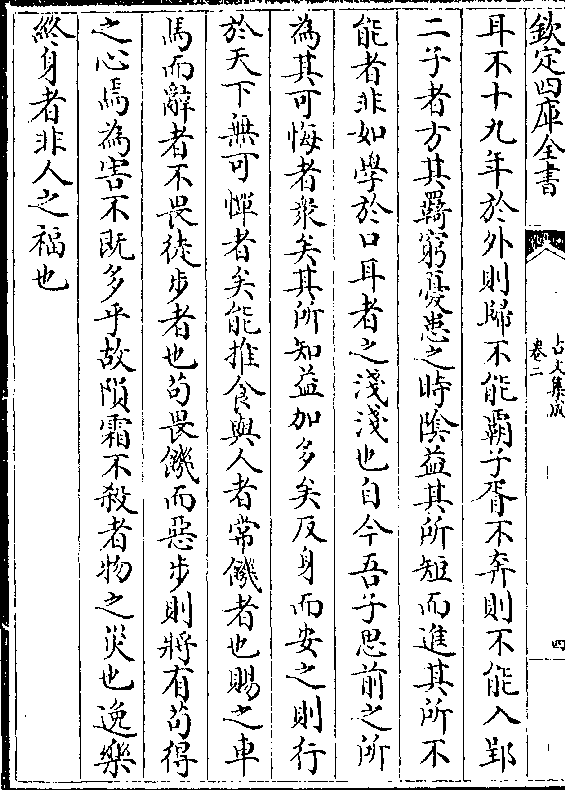 欽定四庫全書
古文集成
卷二
四
耳不十九年於外則歸不能霸子胥不奔則不能入郢
二子者方其羇窮憂患之時陰益其所短而進其所不
能者非如學於口耳者之淺淺也自今吾子思前之所
為其可悔者衆矣其所知益加多矣反身而安之則行
於天下無可憚者矣能推食與人者常饑者也賜之車
馬而辭者不畏徒步者也茍畏饑而惡步則將有茍得
之心焉為害不既多乎故隕霜不殺者物之災也逸樂
終身者非人之福也